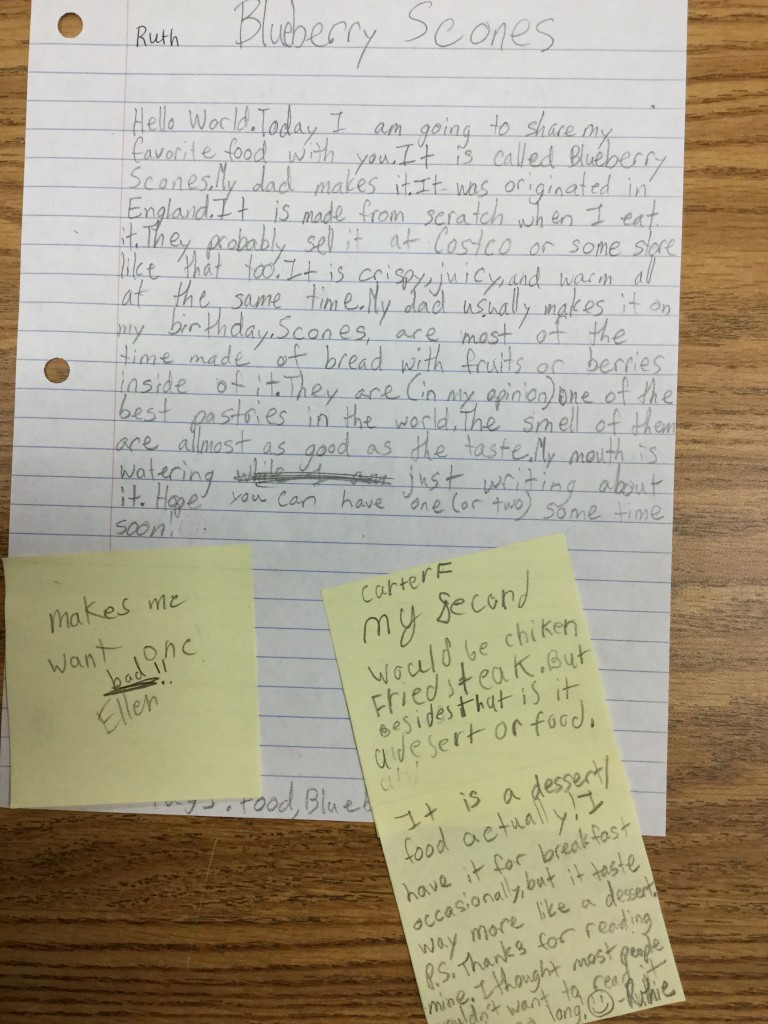 Ruth Blueberry Scones
Hello World.Today I am going to share my
favorite food with you.It is called Blueberry
Scones.My dad makes it.It was originated in
England.It is made from scratch when I eat
it.They probably sell it at Costco or some store
like that too.It is crispy,juicy,and warm all
at the same time.My dad usually makes it on
my birthday.Scones, are most of the
time made of bread with fruits or berries
inside of it.They are (in my opinion) one of the
best pastries in the world.The smell of them
are allmost as good as the taste.My mouth is
watering while I am just writing about
it. Hope you can have one (or two) some time
soon!
makes me
want one
bad!!
Ellen
carter F
my second
would be chiken
Fried steak. But
besides that is it
a desert or food.
It is a dessert/
food actually! I
have it for breakfast
occasionally, but it taste
way more like a dessert.
P.S. Thanks for reading
mine. I thought most people
wouldn't want to read it
long. ☺ -Ruthie
Tags: Food, Blueb